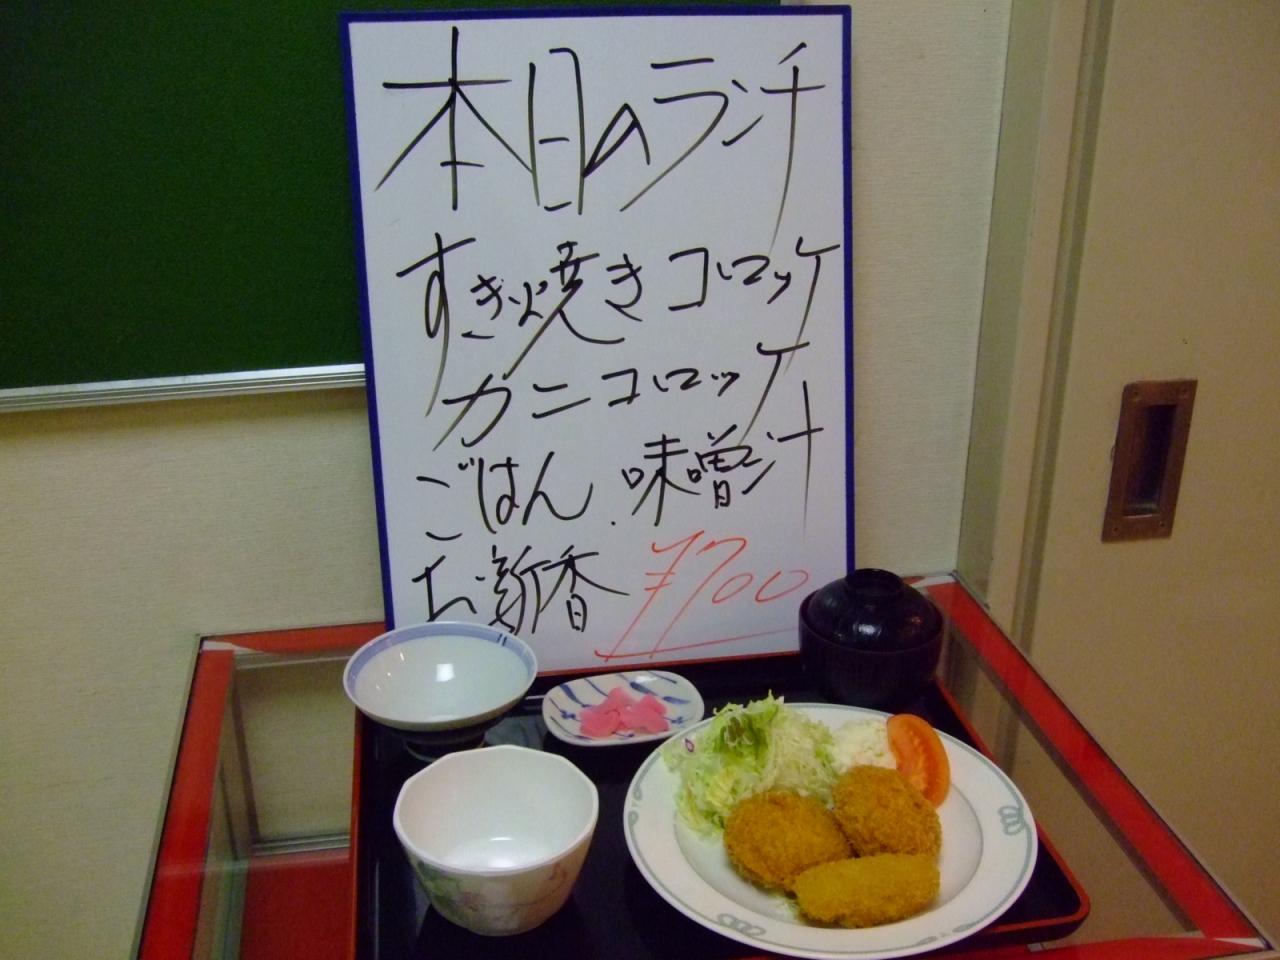 本日のランチ
すき焼きコロッケ
カニコロッケ
ごはん.味噌汁
お新香 ¥700